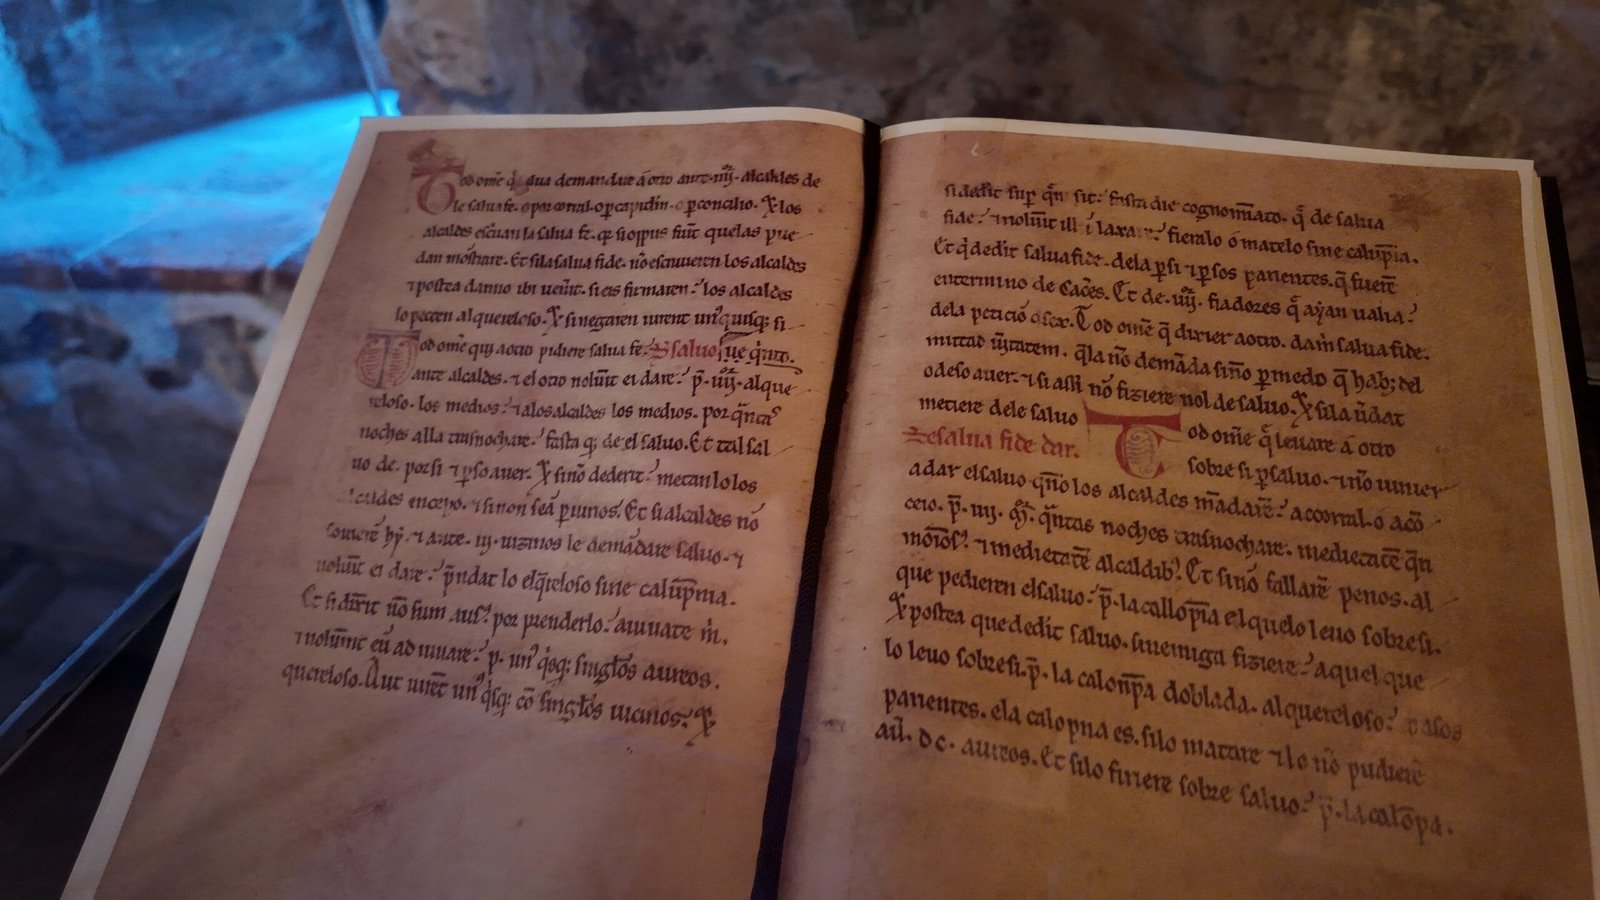 Tod ome q̄ qua demandare a otro ante .iiij. alcaldes de
le salua fe. o por corral. o p̄ carpidin. o p̄ concilio. Et los
alcaldes escutan la salua fe. quelas pue
dan mostrare. Et si la salua fide. nō escriuieren los alcaldes
⁊ postea danno ibi uen̄it. si eis firmaren: los alcaldes
lo pecten al quereloso. Et si negaren iurent un⁹ quisq; si
Tod ome qui a otro pidiere salua fe. De saluo
ante alcaldes. ⁊ el otro noluīt ei dare: p̄. iiij. al que
reloso. los medios: ⁊ a los alcaldes los medios. por q̄ntas
noches alla trasnochare: fasta q; de el saluo. Et tal sal
uo de. por si ⁊ p̱ so auer. Et sinō dederit: metan lo los
alcaldes en cepo. ⁊ si non seā p̱iuros. Et si alcaldes nō
souierē hy. ⁊ ante. iij. uizinos le demādare saluo. ⁊
noluīt ei dare: p̄ndat lo el q̄reloso sine calūpnia.
Et si dix̄it nō sum aus⁹ por prenderlo: aiuuate m̄.
⁊ noluīnt eū adiuuare: p̄. un⁹ q̄sq; singłos aureos.
quereloso. Aut iurēt un⁹ q̄sq; cō singłos uicinos: Et
si dedit sup̱ q̄n sit: fasta die cognom̄ato. q̄ de salua
fide: ⁊ noluīt ill i laxa: fieralo o matelo sine calūpia.
Et q̄ dedit salua fide. de la p̱ si ⁊ p̱ sos parientes. q̄ fuerē
en termino de Cac̄es. Et de. iiij. fiadores q̄ ayan ualia:
de la peticio o sex. Tod ome q̄ dixier a otro. dam̄ salua fide.
mittad ūitatem. q̄ la nō demāda sino p̱ miedo q̄ hab; del
o de so auer. ⁊ si assi nō fiziere nol de saluo. Et si la ūdat
metiere dele saluo
De salua fide dar. Tod ome q̄ leuare a otro
sobre si p̱ saluo. ⁊ nō uinier
a dar el saluo q̄no los alcaldes m̄adarē: a corral. o a cō
ceio. p̄. iiij. q̄ntas noches trasnochare. medietatē q̄ri
moniosᵒ. ⁊ medietatē alcaldib⁹. Et sinō fallarē penos. al
que pedieren el saluo: p̄. la callōpia el que lo leuo sobre si.
Et postea que dedit saluo. si nemiga fiziere: a quel que
lo leuo sobre si. p̄. la calōnpa doblada. al quereloso:
parientes. e la calopna es. si lo matare ⁊ lo nō pudierē
aū. dc. aureos. Et si lo firiere sobre saluo: p̄. la calōpa.